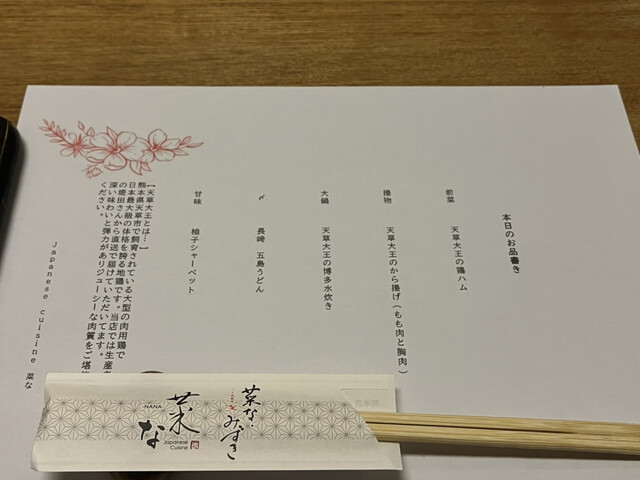 本日のお品書き
前菜 天草大王の鶏ハム
揚物 天草大王のから揚げ(もも肉と胸肉)
大鍋 天草大王の博多水炊き
〆 長崎 五島うどん
甘味 柚子シャーベット
【天草大王とは…】
熊本県天草市で飼育されている大型の肉用鶏で
日本最大級の体格を誇る地鶏です。当店では生産者
の堤田さんから直送で届けていただいてます。
深い味わいと弾力がありジューシーな肉質をご堪
ください。
Japanese cuisine 菜な
菜な・みずき
NANA
菜な
Japanese
Cuisine